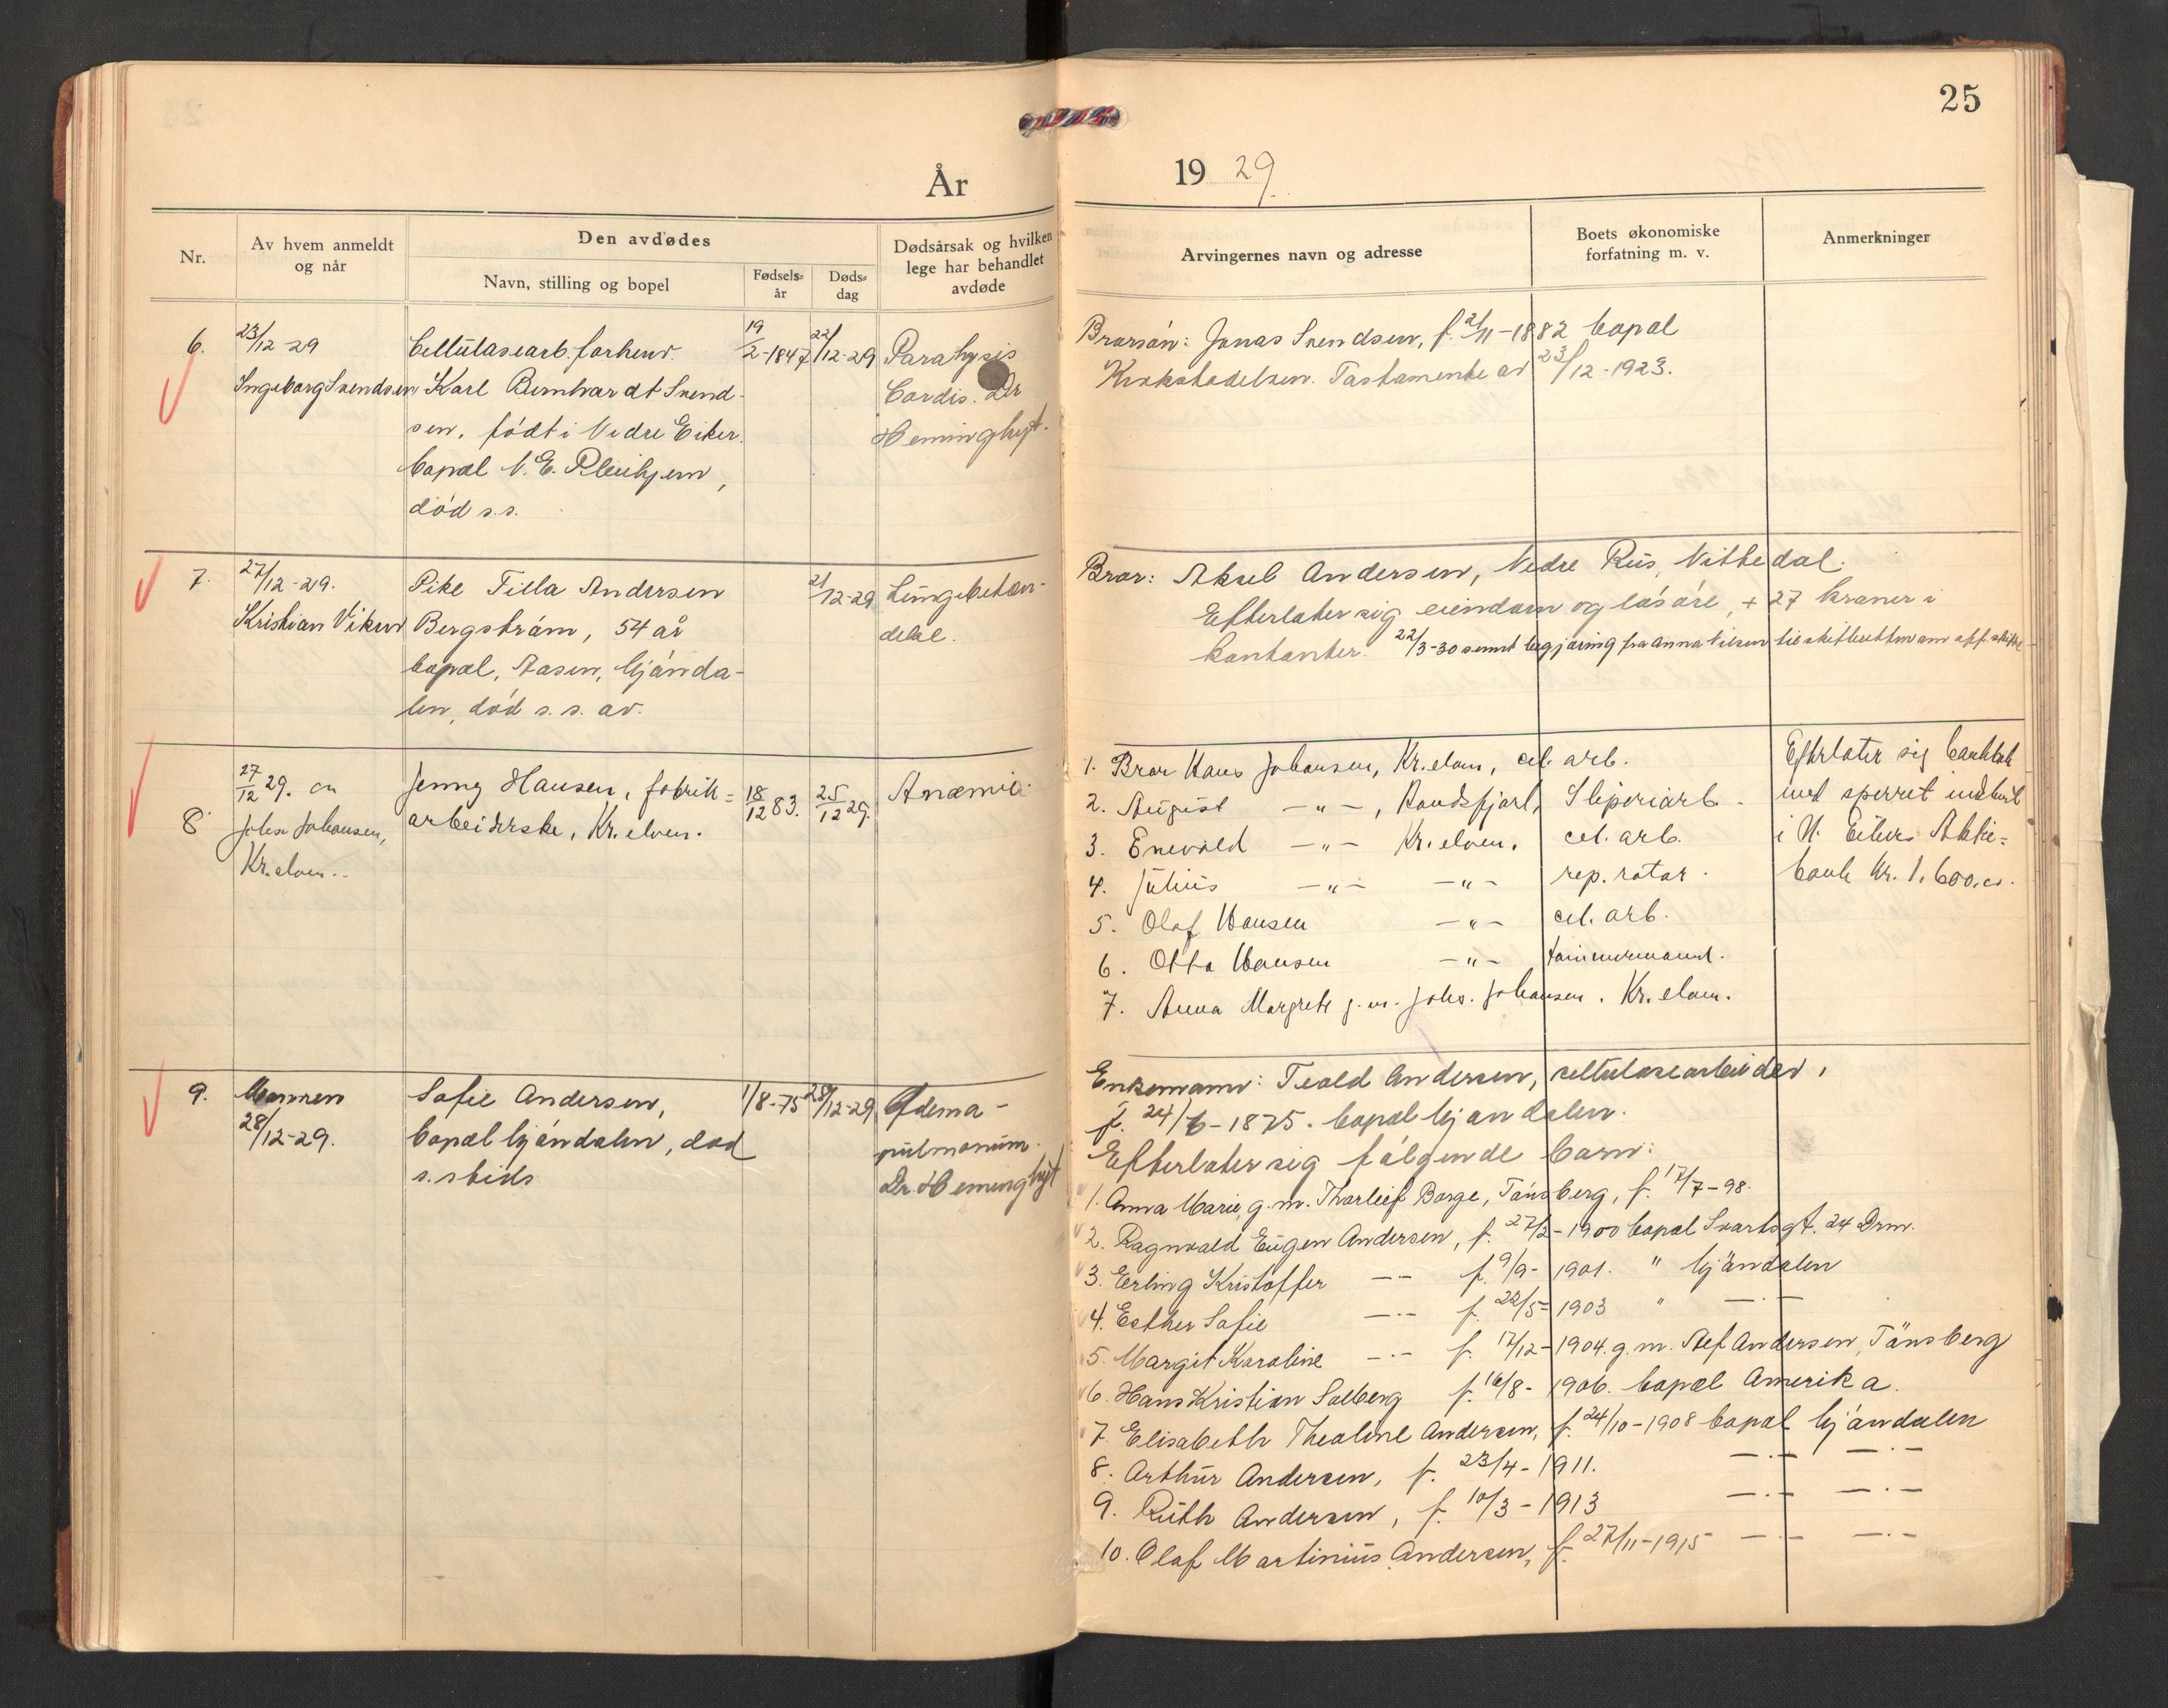 25
År 19 29.
Nr.
Av hvem anmeldt
og når
Den avdødes
Navn, stilling og bopel
Fødsels-
år
Døds-
dag
Dødsårsak og hvilken
lege har behandlet
avdøde
Arvingernes navn og adresse
Boets økonomiske
forfatning m. v.
Anmerkninger
6.
23/12-29
Ingeborg Svendsen
Cellulosearb. forhenv.
Karl Bernhardt Svend-
sen, født i Nedre Eiker.
bopæl N. E. Pleiehjem,
død s.s.
19/2-1847
22/12-29
Paralysis
Cordis. Dr
Heminghyt.
Brorsøn: Jonas Svendsen, f. 2/11-1882 bopæl
Krokstadelven. Testamente av 23/12-1923.
7.
27/12-29.
Kristian Viken
Pike Tilla Andersen
Bergstrøm, 54 år
bopæl, Aasen, Gjønda-
len, død s. s. av.
21/12-29
Lungebeten-
delse.
Bror: Aksel Andersen, Nedre Rus, Nittedal.
Efterlater sig eiendom og løsøre, + 27 kroner i
kontanter. 22/3-30 sendt begjæring fra Anna Nilsen til skifteretten om off. skifte
8
27/12 29. av
Johs Johansen,
Kr.elven..
Jenny Hansen, fabrik=
arbeiderske, Kr. elven.
18/12 83.
25/12 29.
Anæmie.
1. Bror Hans Johansen, Kr.elven, cel. arb.
2. August —"—, Randsfjord, Sliperiarb.
3. Enevald —"— Kr.elven. cel. arb.
4. Julius —"— —"— rep.ratør.
5. Olaf Hansen —"— cel. arb.
6. Otto Hansen —"— tømmermand.
7. Anna Margrete g. m. Johs. Johansen. Kr. elven.
Efterlater sig bankbok
med sperret indskud
i N. Eikers Aktie=
bank Kr. 1.600.oo.
9.
Mannen
28/12-29.
Sofie Andersen,
bopæl Gjøndalen, død
s. steds
1/8-75
28/12-29
Ødema-
pulmonum.
Dr. Heminghyt
Enkemann: Teold Andersen, cellulosearbeider,
f. 24/6-1875. bopæl Gjøndalen.
Efterlater sig følgende barn:
1. Anna Marie, g. m. Thorleif Borge, Tønsberg, f. 17/7-98.
2. Ragnvald Eugen Andersen, f. 27/2-1900 bopæl Svartsgt. 24 Drm.
3. Erling Kristoffer —"— f. 9/9-1901. " Gjøndalen
4. Esther Sofie —"— f. 22/5-1903 " —"—
5. Margit Karoline —"— f. 17/12-1904. g. m. Alf Andersen, Tønsberg
6. Hans Kristian Solberg f. 16/8-1906. bopæl Amerika.
7. Elisabeth Theoline Andersen, f. 24/10-1908 bopæl Gjøndalen
8. Arthur Andersen, f. 23/4-1911. —"— —"—
9. Ruth Andersen, f. 10/3-1913 —"— —"—
10. Olaf Martinius Andersen, f. 27/11-1915 —"— —"—